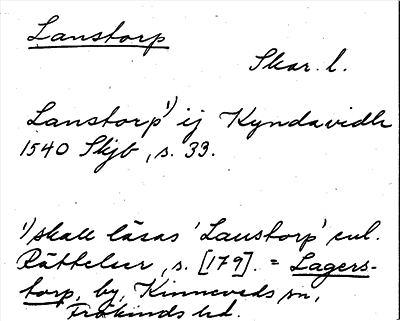 Lanstorp
Skar. l.
Lanstorp¹⁾ ij Kyndavidh
1540 Skjb, s. 33.
¹⁾ skall läsas 'Laustorp' enl.
Rättelser, s. [179]. = Lagers-
torp, by, Kinneveds sn,
Frökinds hd.